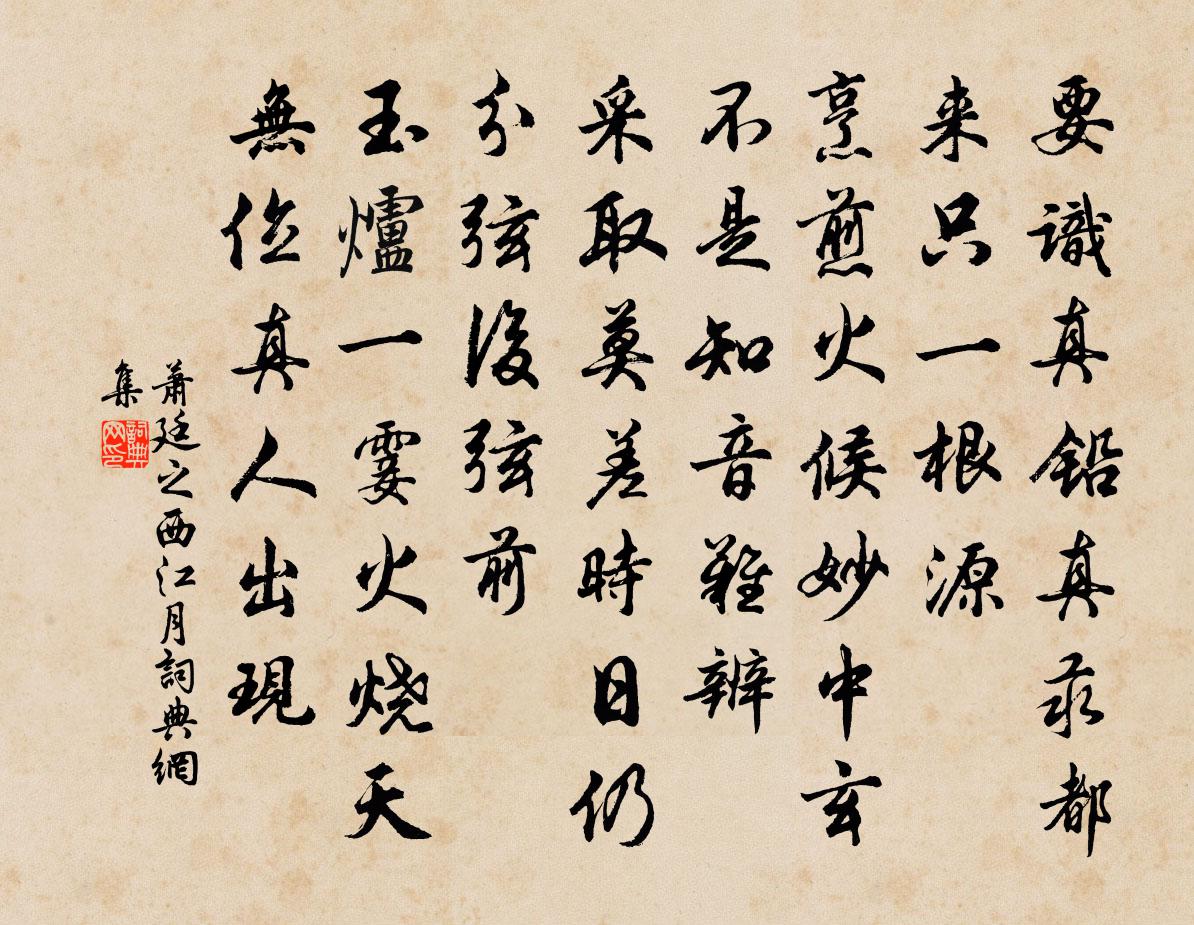 要識真鉛真汞都
来只一根源
烹煎火候妙中玄
不是知音難辨
采取莫差時日仍
分弦後弦前
玉爐一霎火烧天
無位真人出現
蕭廷之西江月詞典網
集
詞典
网印